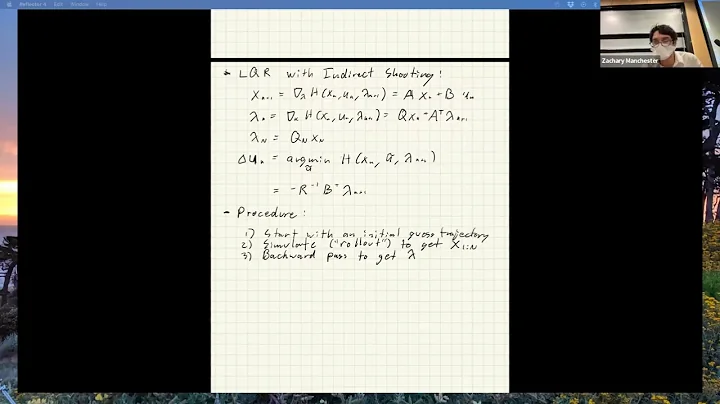 - LQR with Indirect Shooting:
xₙ₊₁ = ∇λ H(xₙ, uₙ, λₙ₊₁) = A xₙ + B uₙ
λₙ = ∇ₓ H(xₙ, uₙ, λₙ₊₁) = Q xₙ + Aᵀ λₙ₊₁
λN = QN xN
Δuₙ = argmin H(xₙ, ũ, λₙ₊₁)
ũ
= -R⁻¹ Bᵀ λₙ₊₁
- Procedure:
1) Start with an initial guess trajectory
2) Simulate ("rollout") to get x1:N
3) Backward pass to get λ
Zachary Manchester